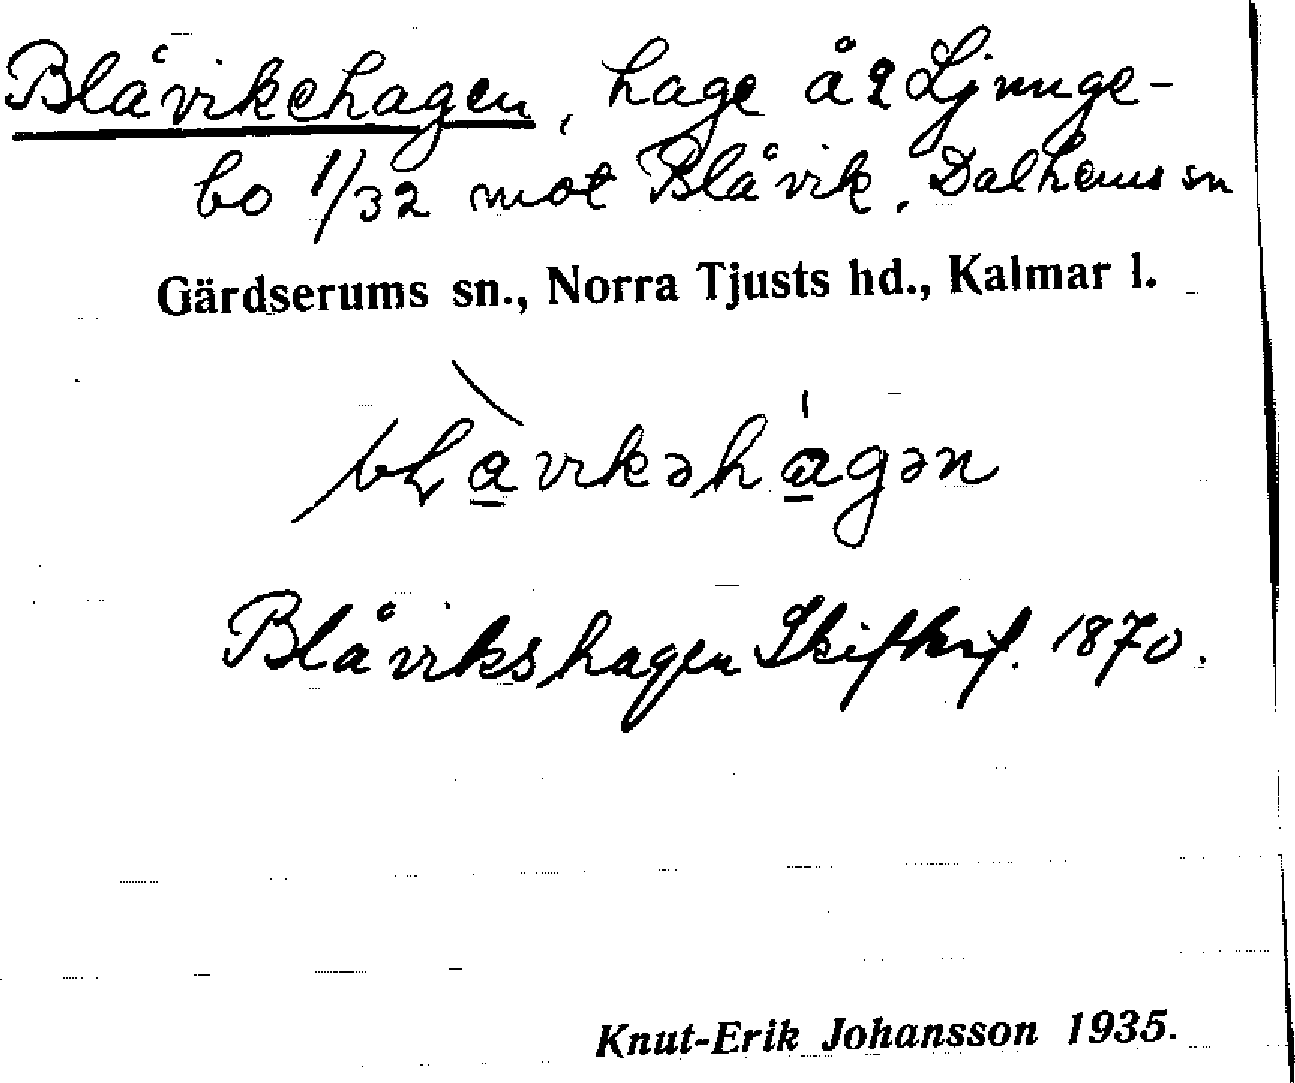 Blåvikehagen, hage å 2 Ljunge-
bo 1/32 mot Blåvik, Dalhems sn
Gärdserums sn., Norra Tjusts hd., Kalmar l.
bLàvikəhágən
Blåvikshagen Skifkrf. 1870.
Knut-Erik Johansson 1935.